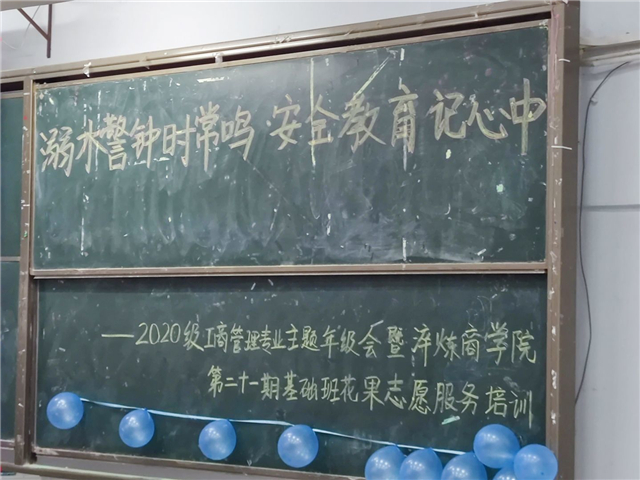 溺水警钟时常鸣 安全教育记心中
——2020级工商管理专业主题年级会暨淬炼商学院
第二十一期基础班花果志愿服务培训